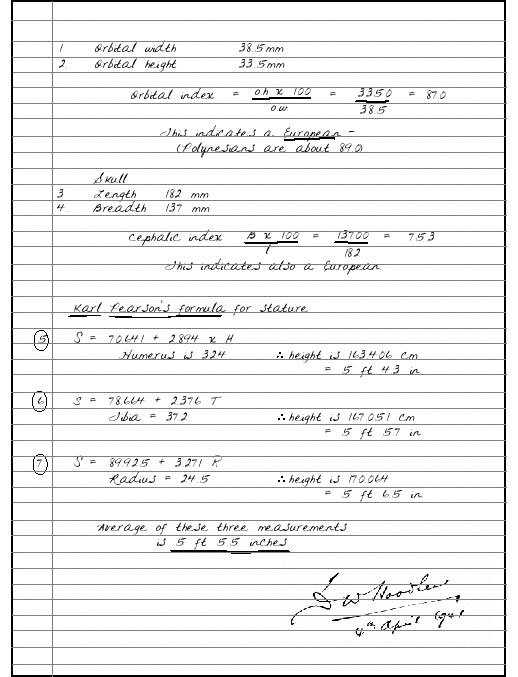 1 Orbital width 38.5mm
2. Orbital height 33.5mm
Orbital index = o.h x 100 = 3350 = 87.0
o.w. 38.5
This indicates a European -
(Polynesians are about 89.0)
Skull
3 Length 182 mm
4. Breadth 137 mm
Cephalic index B x 100 = 13700 = 75.3
l 182
This indicates also a European
Karl Pearson's formula for stature
5 S = 70.641 + 2.894 x H
Humerus is 32.4 ∴ height is 163.406 cm
= 5 ft 4.3 in
6 S = 78.664 + 2.376 T
Tibia = 37.2 ∴ height is 167.051 cm
= 5 ft 5.7 in
7 S = 89.925 + 3.271 R
Radius = 24.5 ∴ height is 170.064
= 5 ft 6.5 in
Average of these three measurements
is 5 ft 5.5 inches
D W Hoodless
4th April 1941